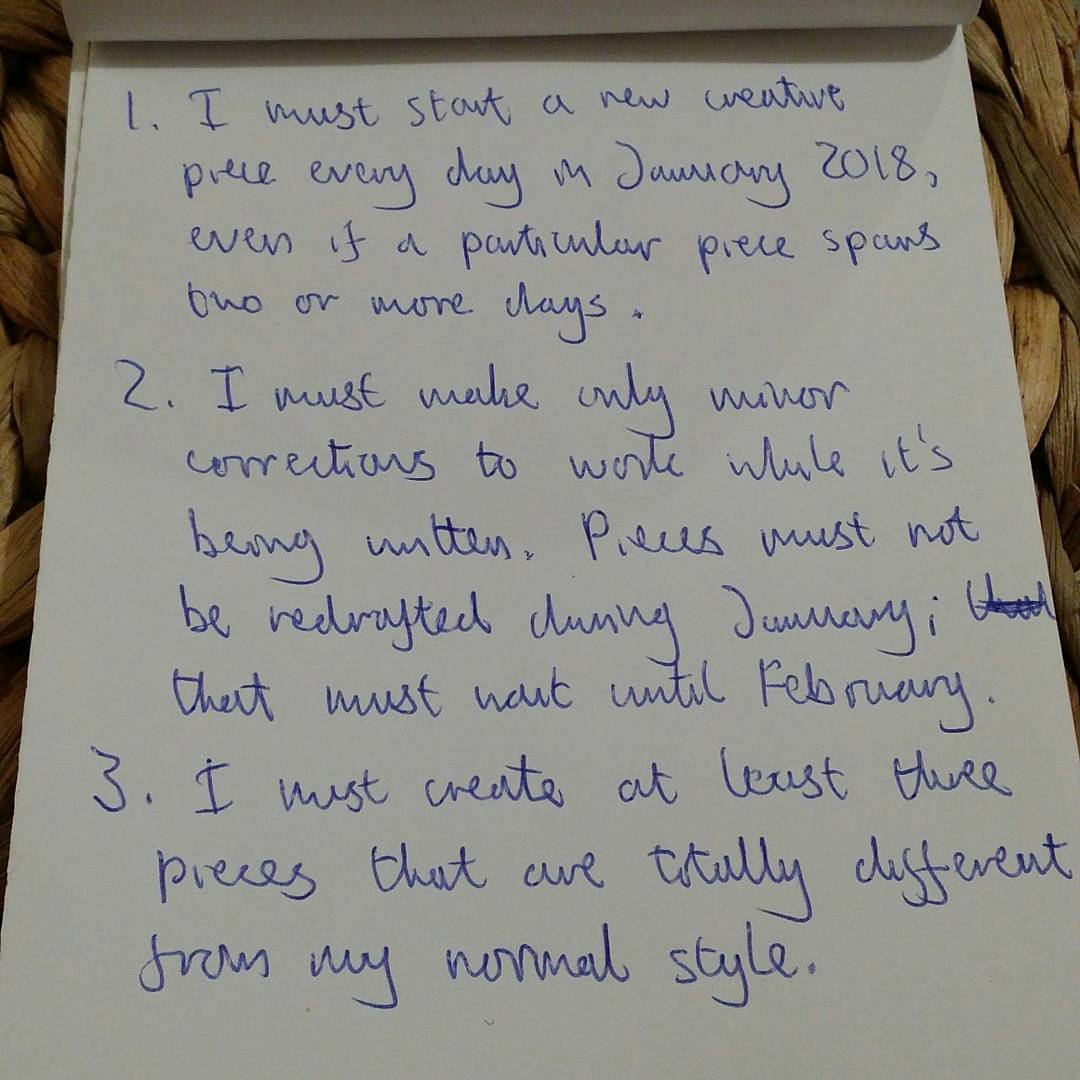 1. I must start a new creative
piece every day in January 2018,
even if a particular piece spans
two or more days.
2. I must make only minor
corrections to work while it's
being written. Pieces must not
be redrafted during January;
that must wait until February.
3. I must create at least three
pieces that are totally different
from my normal style.